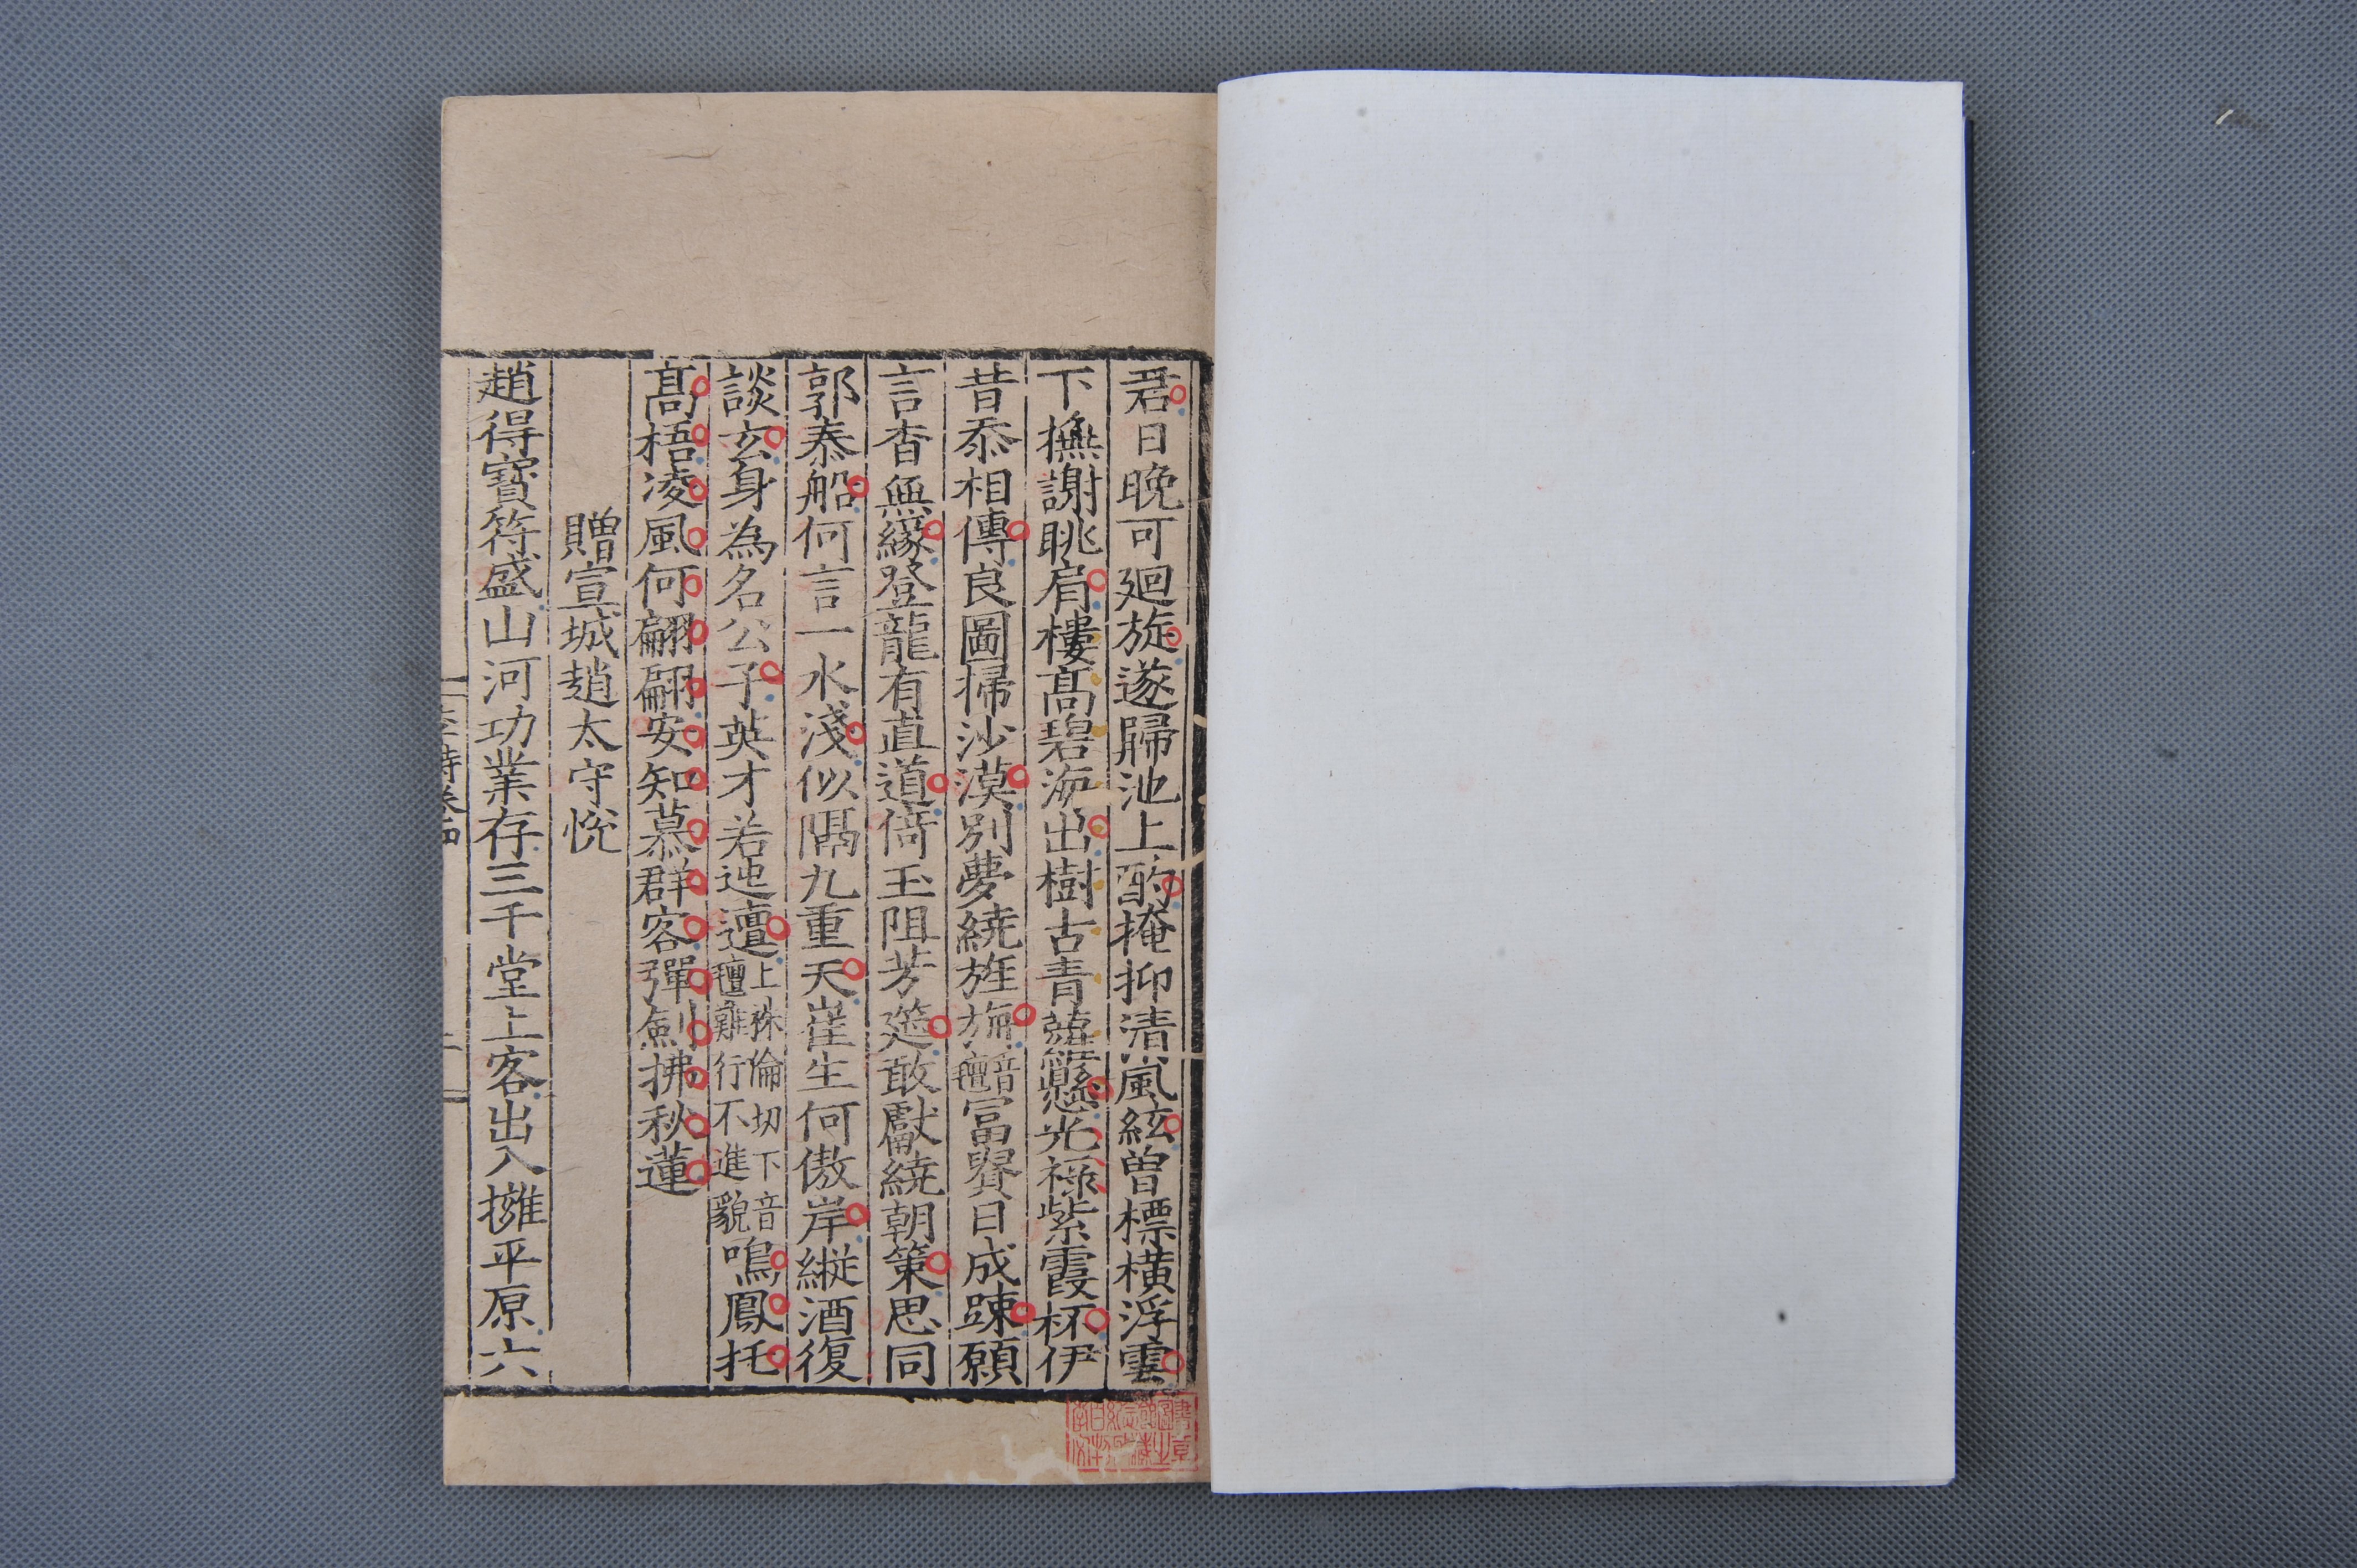 君日晚可廻旋遂歸池上酌掩抑清風絃曾標橫浮雲
下撫謝朓肩樓髙碧海出樹古青蘿懸光祿紫霞杯伊
昔忝相傳良圖掃沙漠別夢繞旌旃音氊富貴日成踈願
言杳無緣登龍有直道倚玉阻芳筵敢獻繞朝策思同
郭泰船何言一水淺似隔九重天崔生何傲岸縱酒復
談玄身為名公子英才若迍邅上株倫切下音氊難行不進貌鳴鳳托
髙梧凌風何翩翩安知慕群客彈劍拂秋蓮
贈宣城趙太守悅
趙得寶符盛山河功業存三千堂上客出入擁平原六